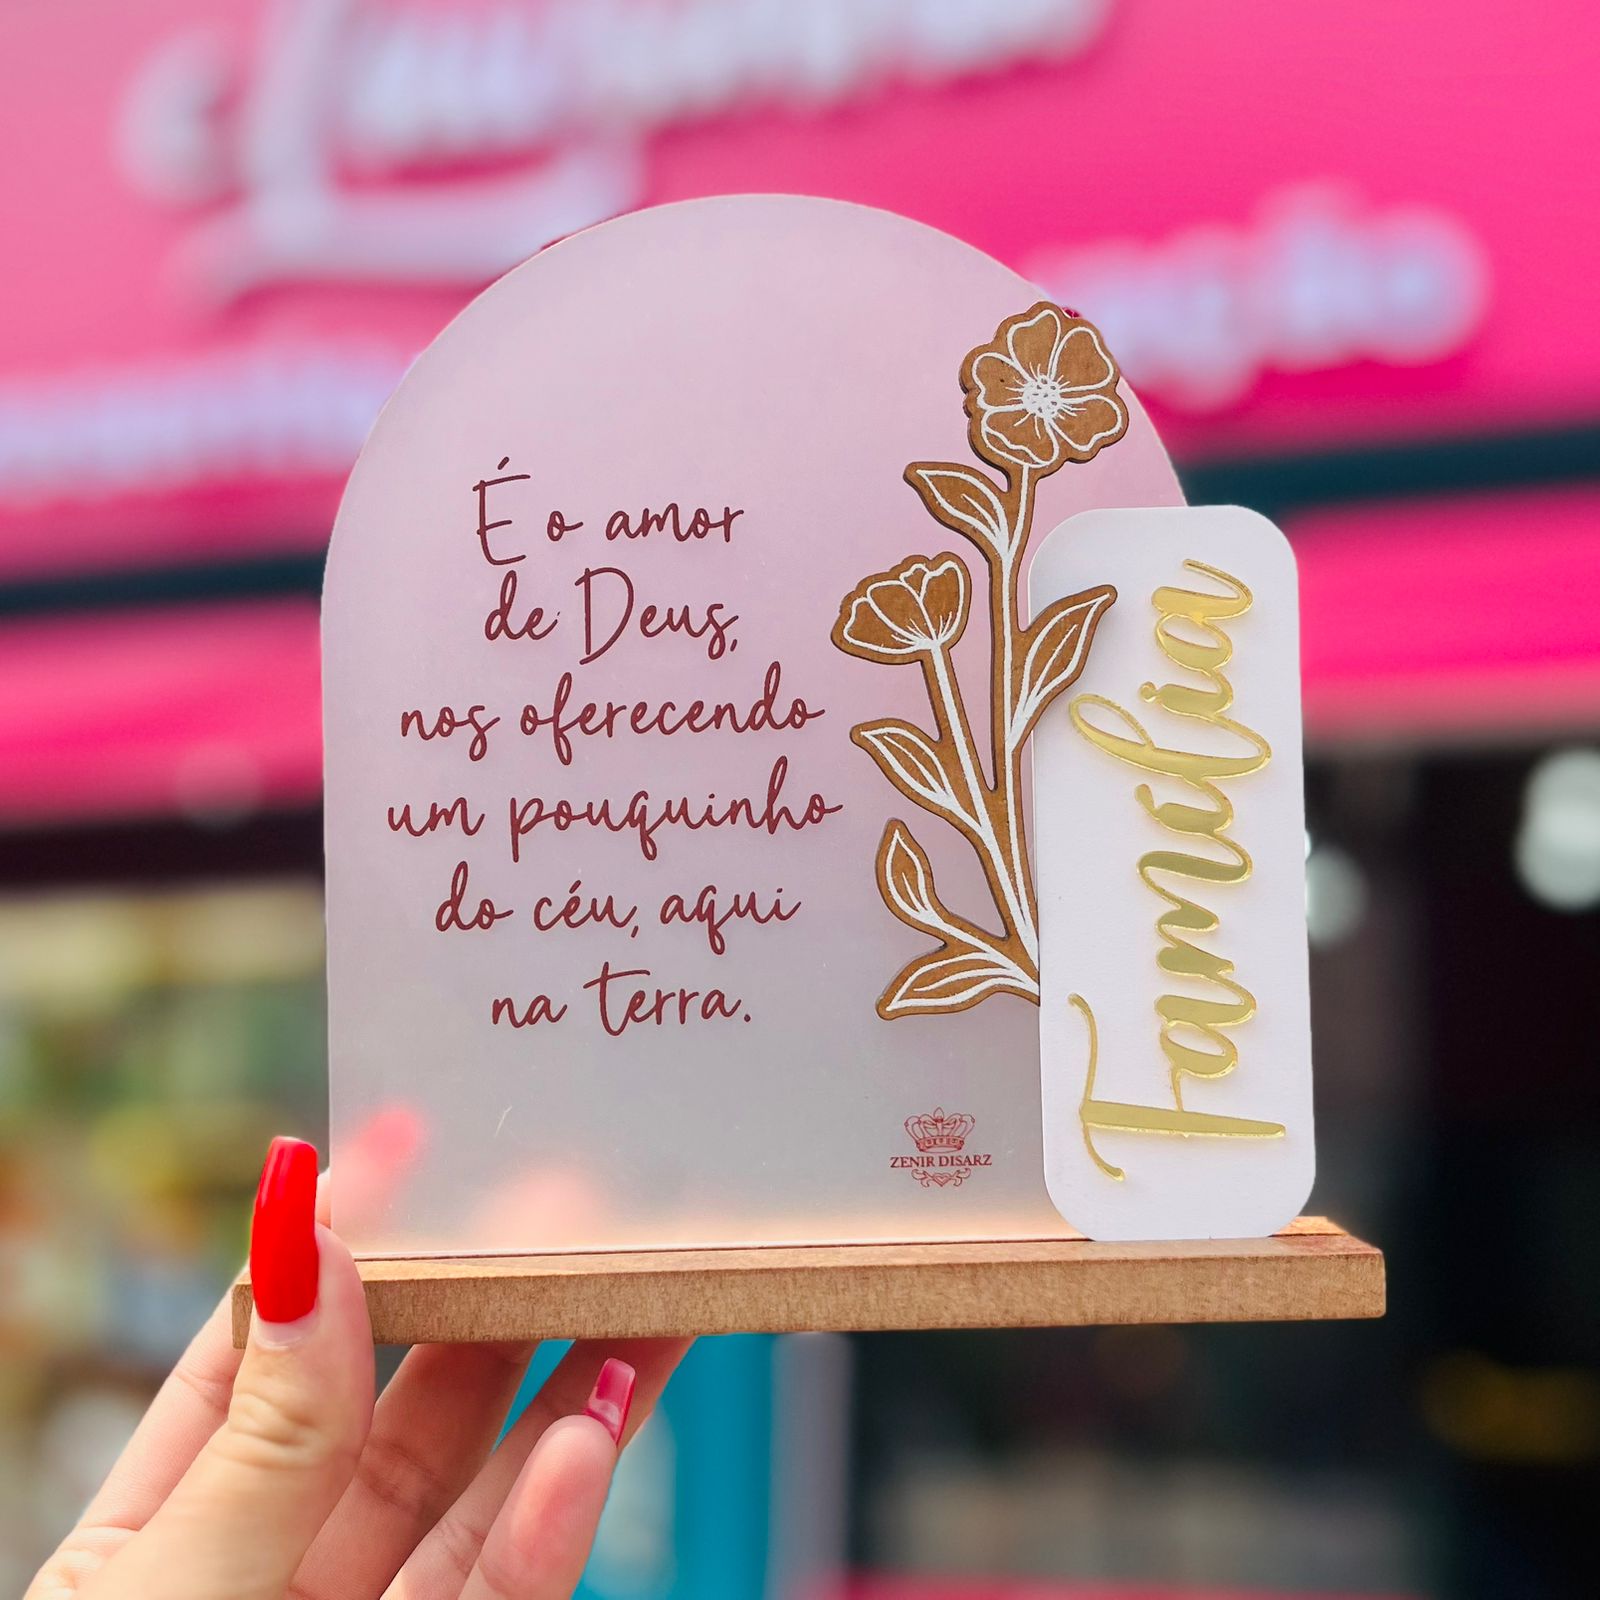 É o amor
de Deus,
nos oferecendo
um pouquinho
do céu, aqui
na terra.
Família
ZENIR DISARZ